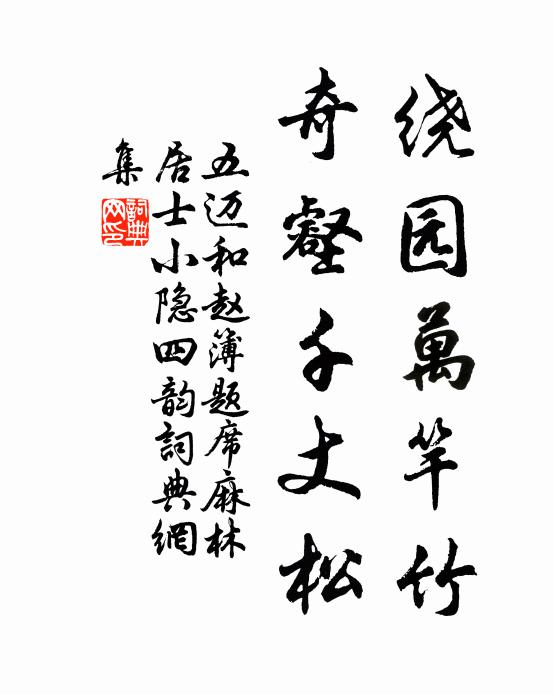 绕园萬竿竹
奇壑千丈松
五迈和赵簿题席麻林
居士小隐四韵詞典網
集
詞典
网印